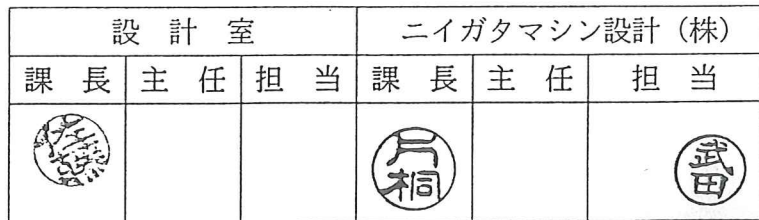 設計室 ニイガタマシン設計（株）
課長 主任 担当 課長 主任 担当
片桐 武田